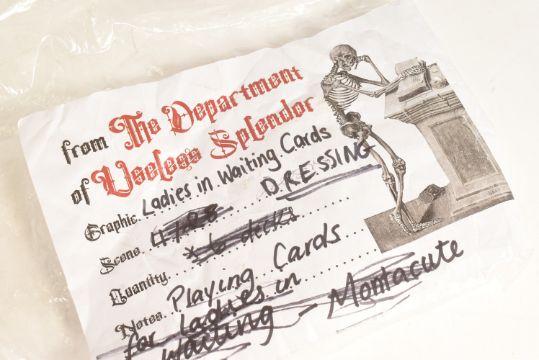 from The Department
of Useless Splendor
Graphic. Ladies in Waiting Cards
Scene DRESSING
Quantity
Notes. Playing Cards
for Ladies in
Waiting - Montacute